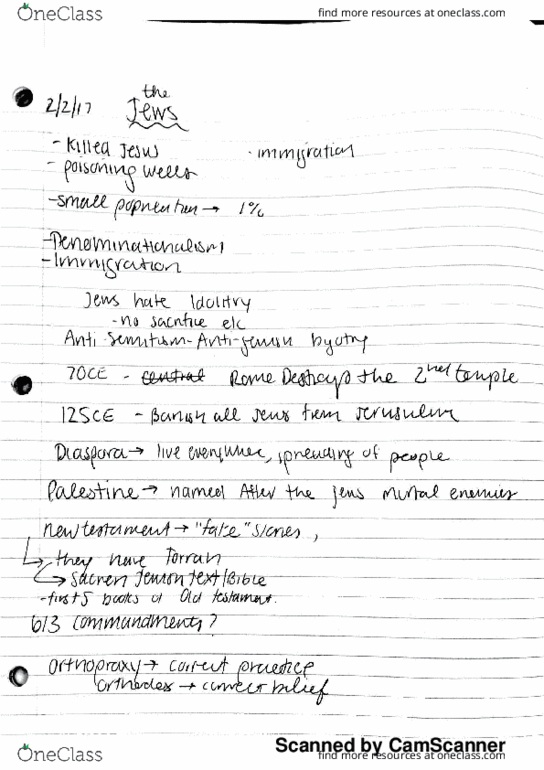 OneClass
find more resources at oneclass.com
2/2/17 the Jews
- Killed Jesus · immigration
- poisoning wells
- small popnention → 1%
- Denominationalism
- Immigration
Jews hate Idolitry
- no sacrifice etc
Anti Semitism - Anti-Jewish bygotry
70CE - central Rome Destroys the 2nd temple
125CE - Banish all Jews from Jerusulem
Diaspora → live everywhere, spreading of people
Palestine → named After the Jews mortal enemies
new testament → "fake" stories,
↳ they have Torrah
↳ Sacred Jewish text/Bible
- first 5 books of Old testament.
613 commandments?
Orthopraxy → correct practice
Orthodox → correct belief
Scanned by CamScanner
OneClass
find more resources at oneclass.com